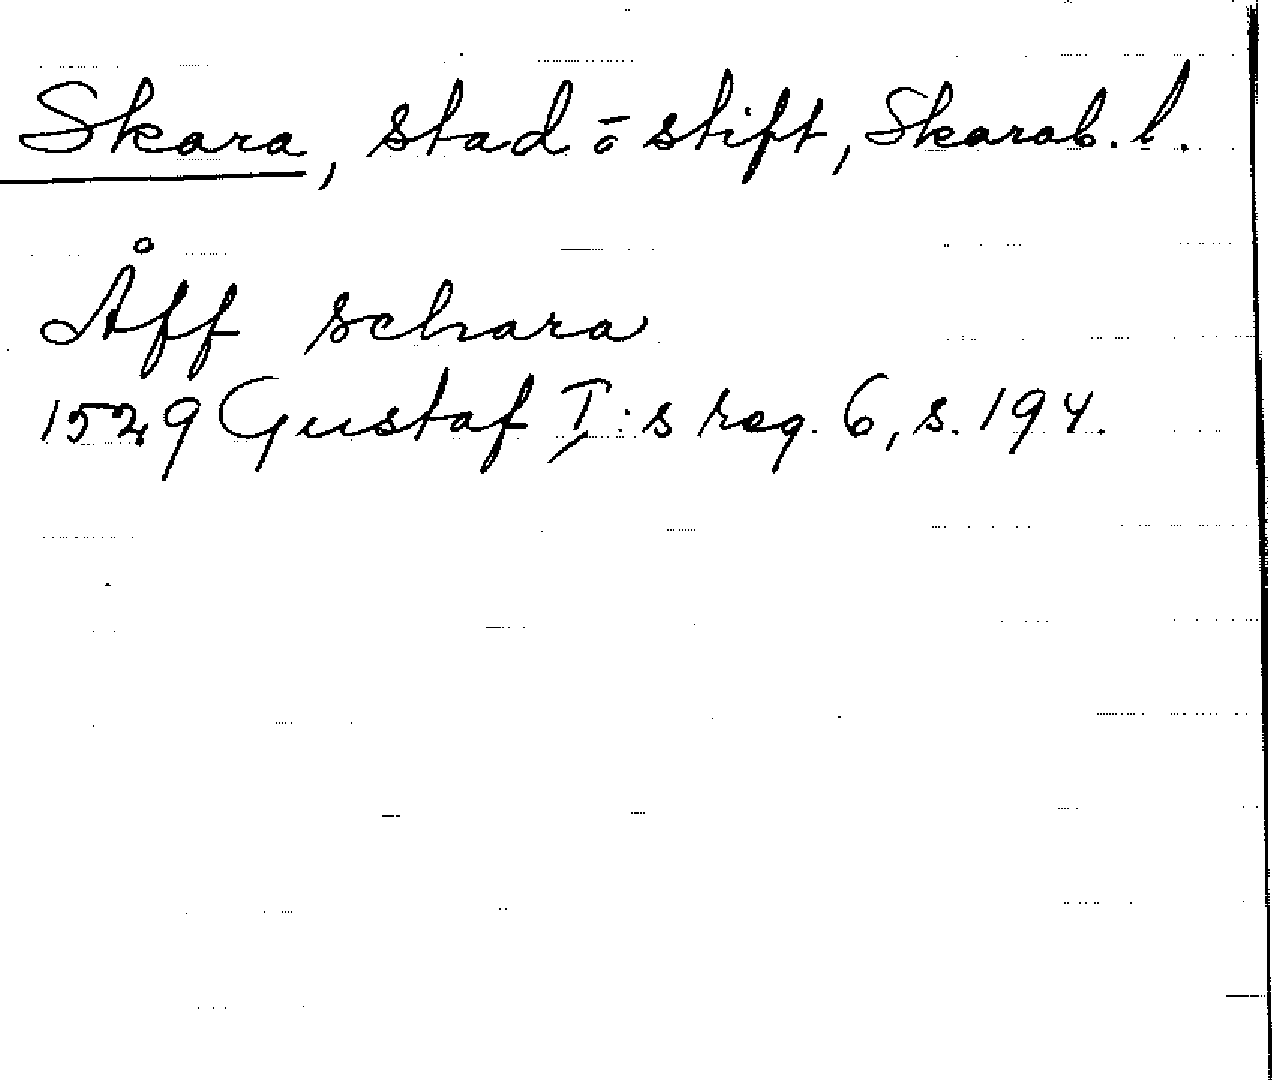 Skara, stad o stift, Skarab. l.
Åff schara
1529 Gustaf I:s reg. 6, s. 194.